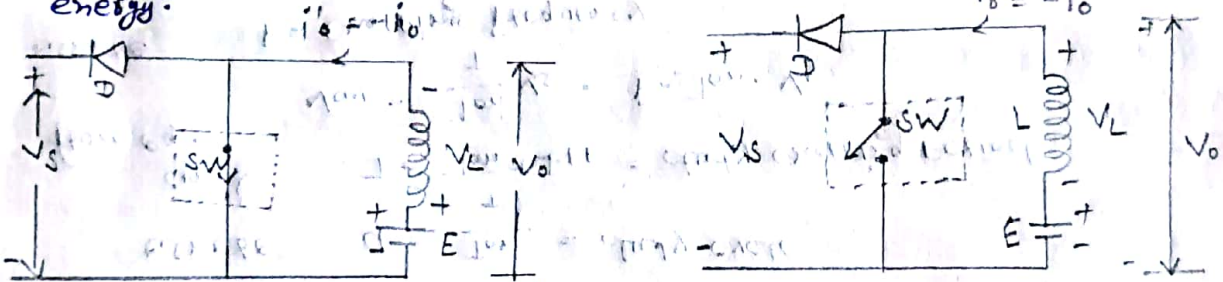 energy.
i'o = -io
+
D
-
Vs
SW
VL
Vo
+
+
E
-
io = -io
+
D
+
+
Vs
SW
L
VL
Vo
-
E
+
-
-
-